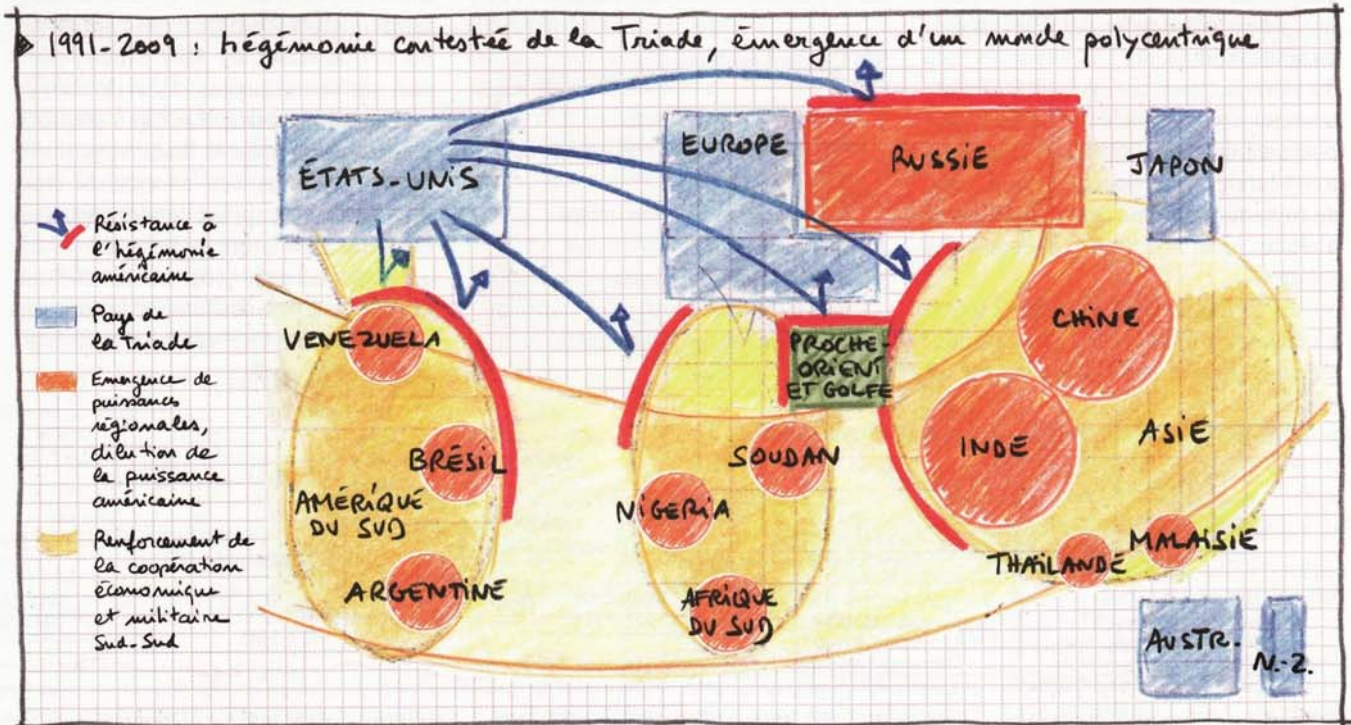 1991-2009 : hégémonie contestée de la Triade, émergence d'un monde polycentrique
Résistance à
l'hégémonie
américaine
Pays de
la Triade
Emergence de
puissances
régionales,
dilution de
la puissance
américaine
Renforcement de
la coopération
économique
et militaire
Sud-Sud
ÉTATS-UNIS
EUROPE
RUSSIE
JAPON
VENEZUELA
BRÉSIL
AMÉRIQUE
DU SUD
ARGENTINE
PROCHE-
ORIENT
ET GOLFE
SOUDAN
NIGERIA
AFRIQUE
DU SUD
CHINE
INDE
ASIE
THAÏLANDE
MALAISIE
AUSTR.
N.-Z.